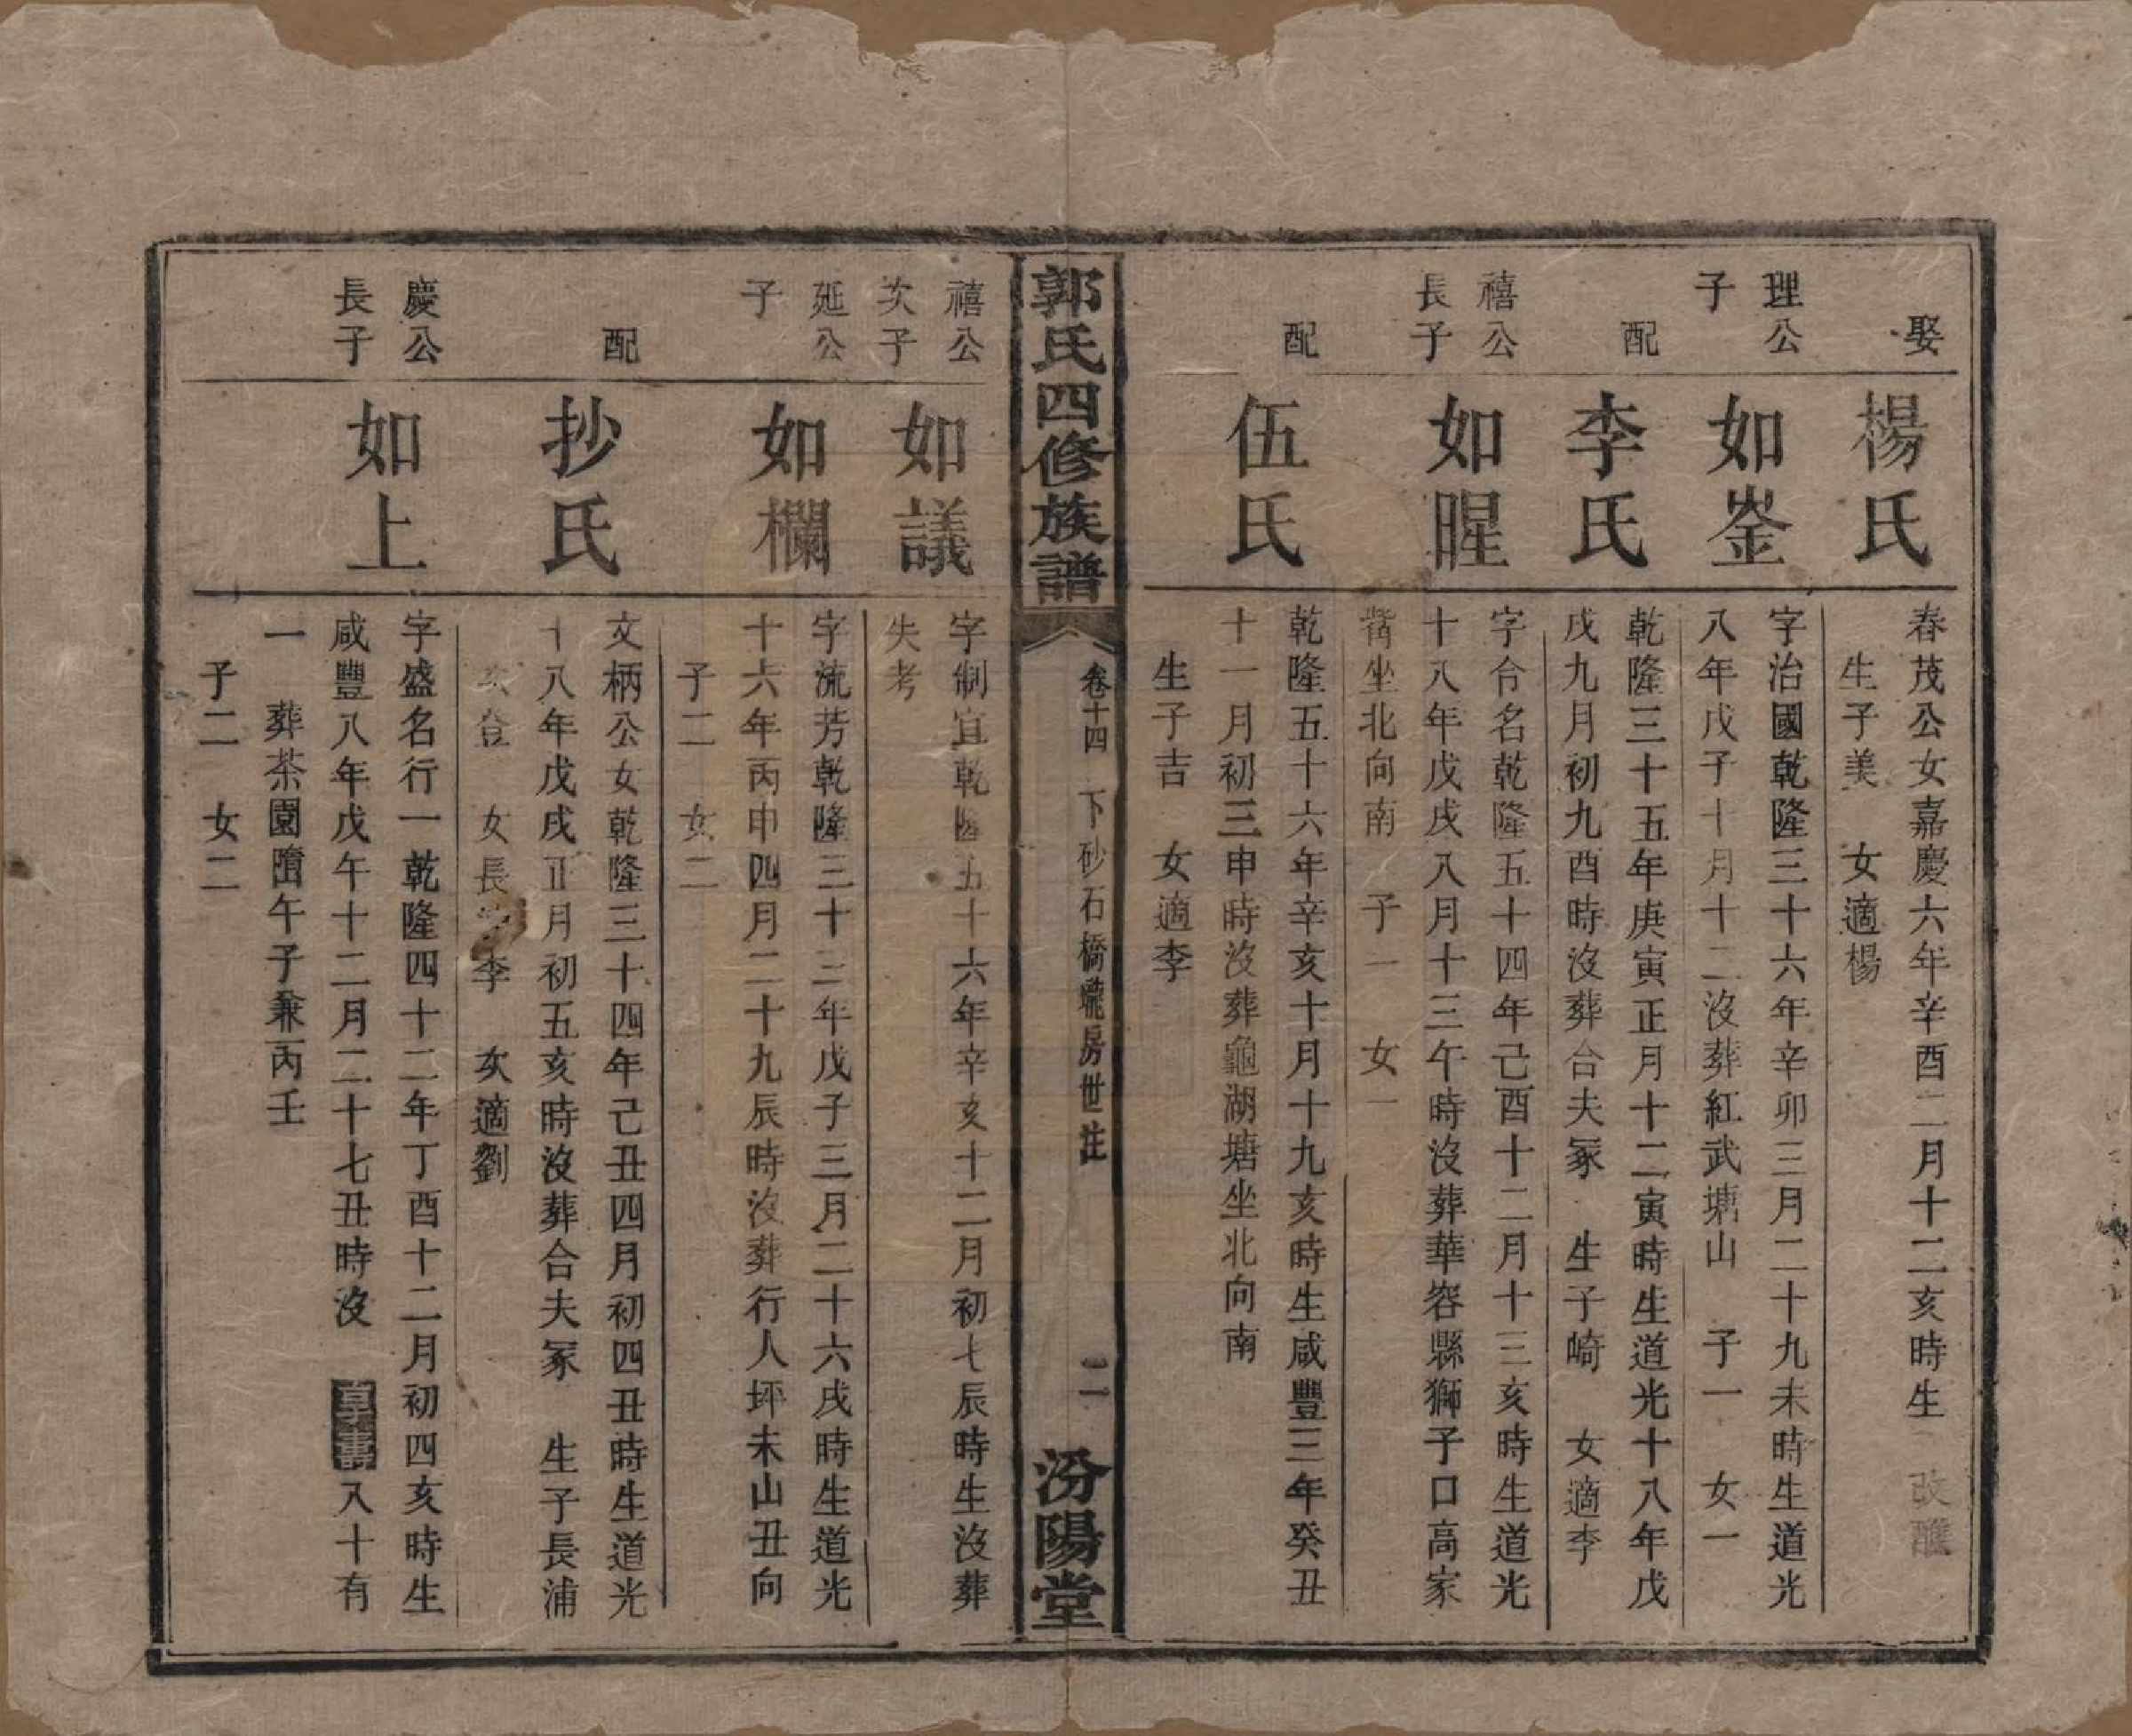 娶
楊氏
春茂公女嘉慶六年辛酉二月十二亥時生 改醮
生子美 女適楊
理公
子
如崟
字治國乾隆三十六年辛卯三月二十九未時生道光
八年戊子十月十二沒葬紅武塘山 子一 女一
配
李氏
乾隆三十五年庚寅正月十二寅時生道光十八年戊
戌九月初九酉時沒葬合夫冢 生子崎 女適李
禧公
長子
如暒
字合名乾隆五十四年己酉十二月十三亥時生道光
十八年戊戌八月十三午時沒葬華容縣獅子口高家
坐北向南 子一 女一
配
伍氏
乾隆五十六年辛亥十月十九亥時生咸豐三年癸丑
十一月初三申時沒葬龜湖塘坐北向南
生子吉 女適李
郭氏四修族譜
卷十四 下砂石橋房世註
二
汾陽堂
禧公
次子
如議
字制宜乾隆五十六年辛亥十二月初七辰時生沒葬
失考
延公
子
如欄
字流芳乾隆三十三年戊子三月二十六戌時生道光
十六年丙申四月二十九辰時沒葬行人坪未山丑向
子二 女二
配
抄氏
文柄公女乾隆三十四年己丑四月初四丑時生道光
十八年戊戌正月初五亥時沒葬合夫冢 生子長浦
次登 女長李 次適劉
慶公
長子
如上
字盛名行一乾隆四十二年丁酉十二月初四亥時生
咸豐八年戊午十二月二十七丑時沒 八十有
一 葬茶園墮午子兼丙壬
子二 女二